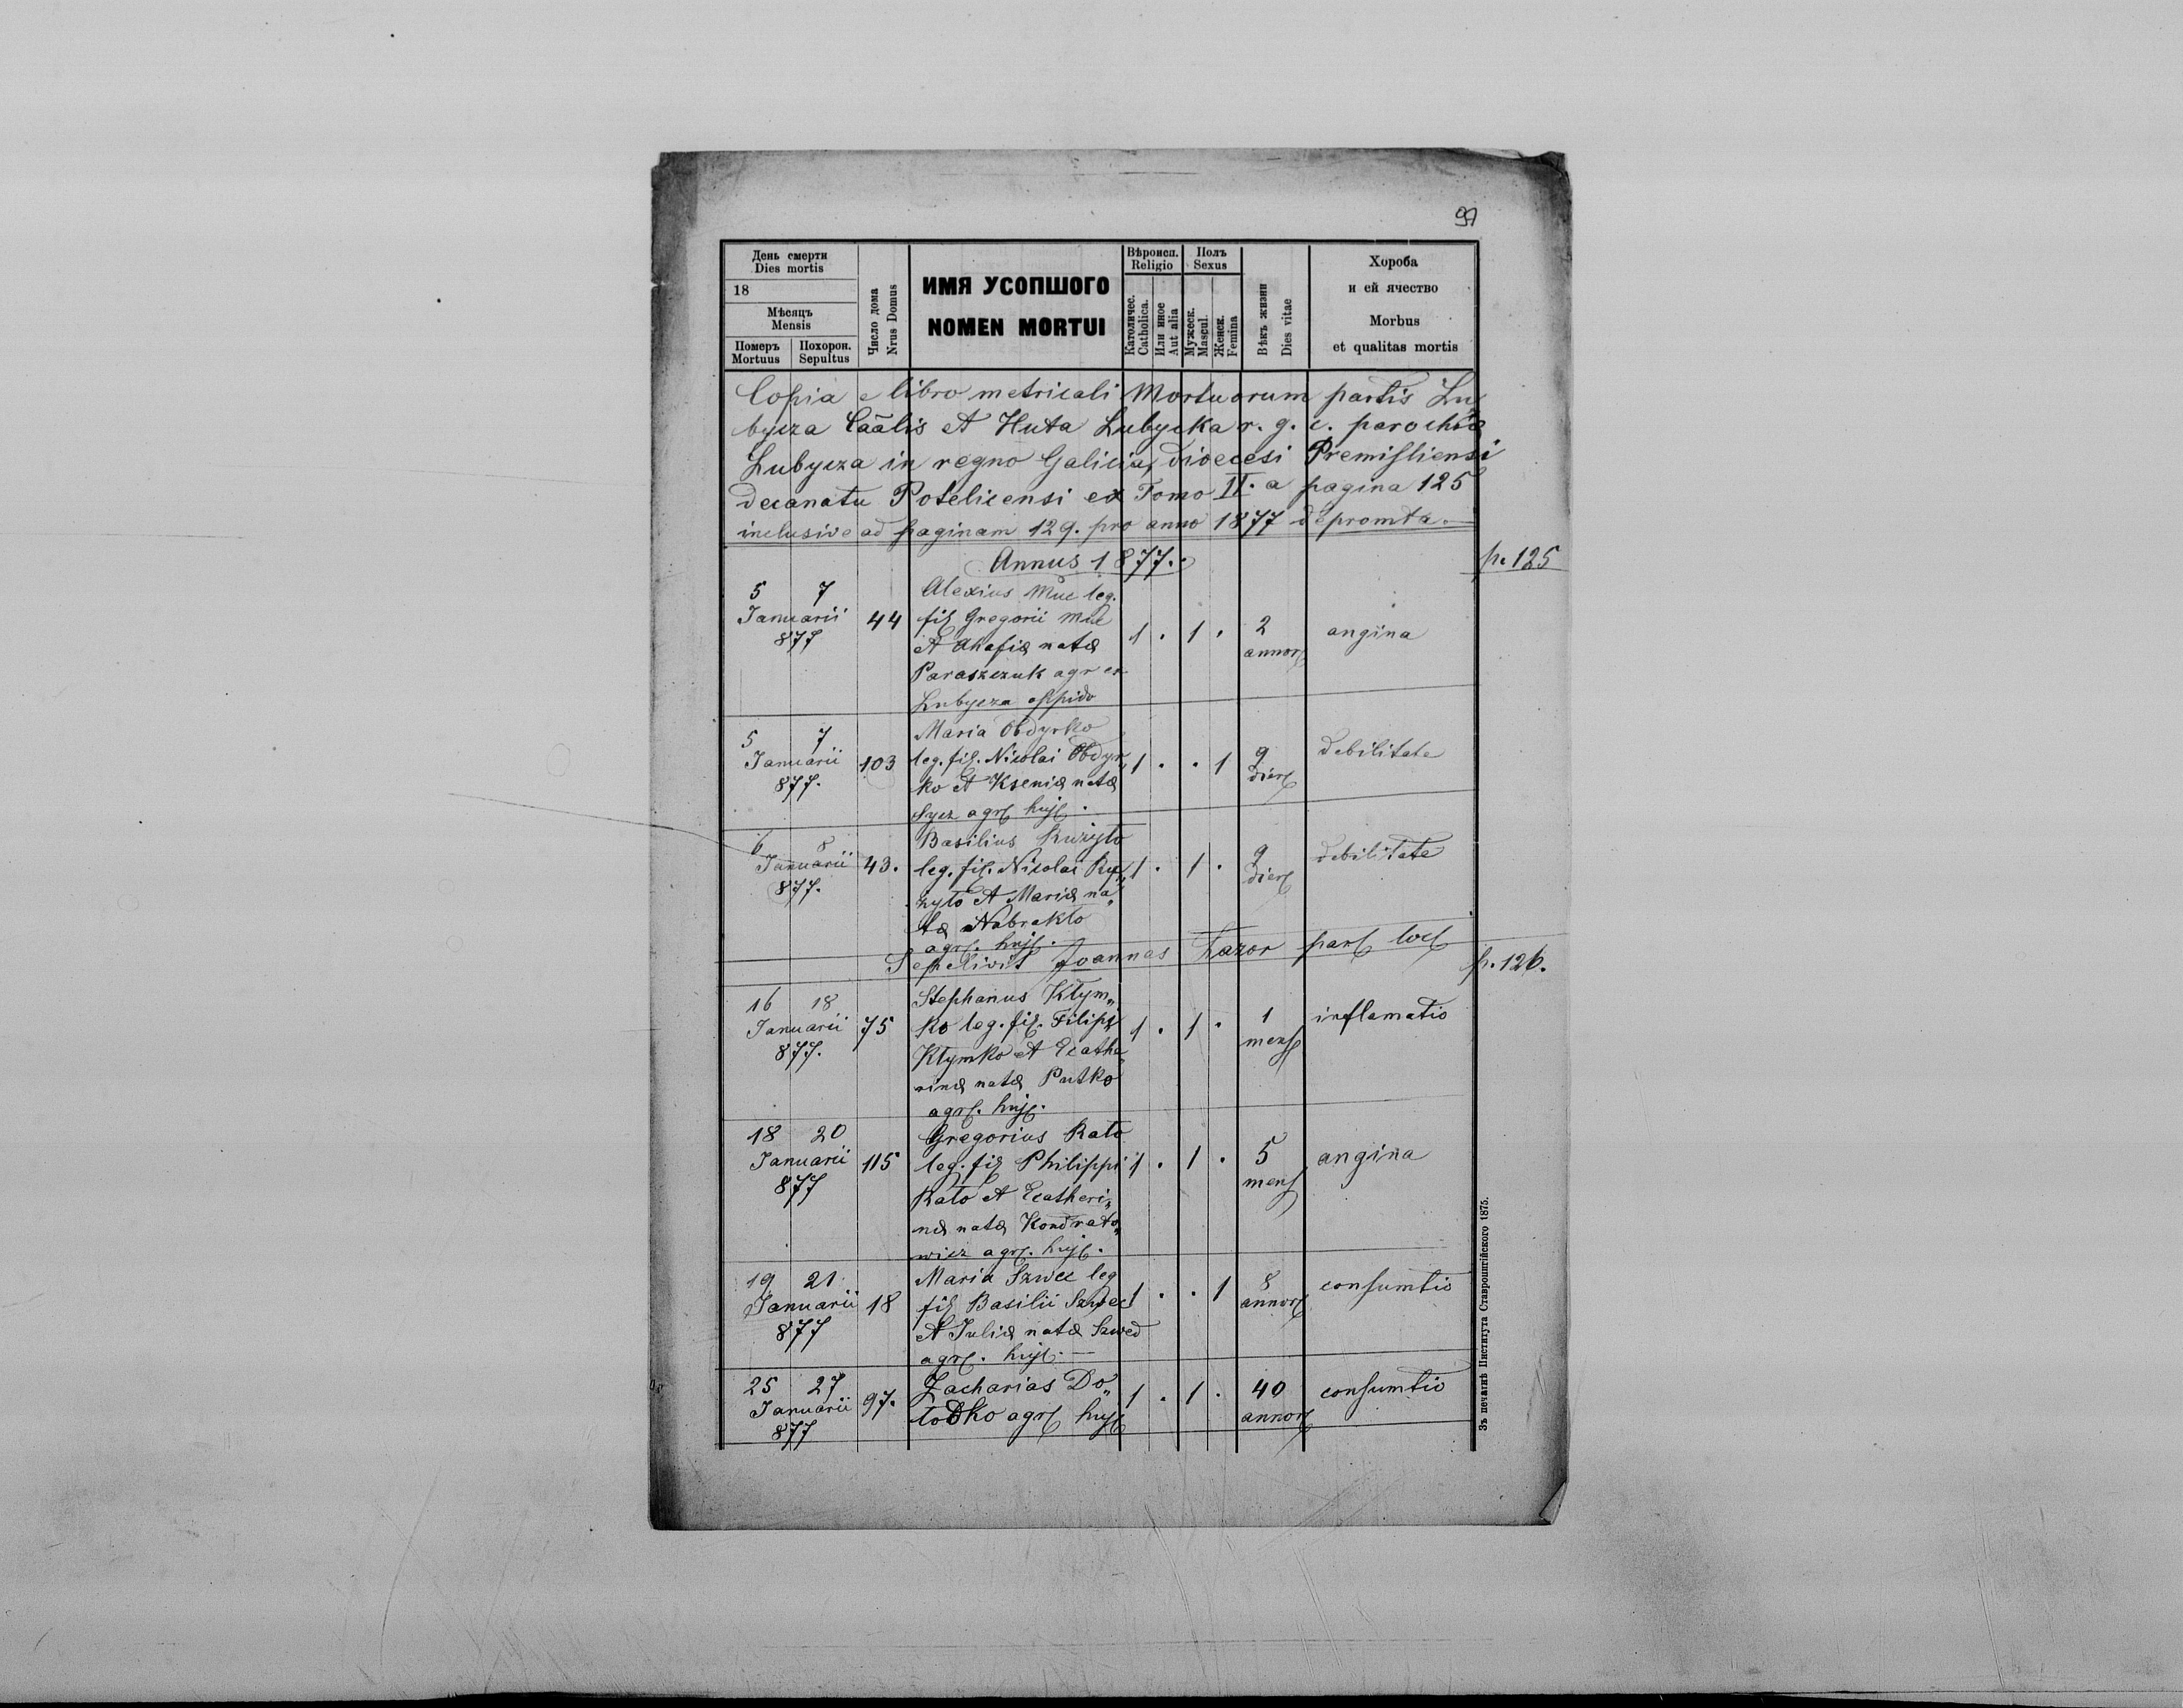 97
День смерти
Dies mortis
18
Мѣсяцъ
Mensis
Померъ
Mortuus
Похорон.
Sepultus
Число дома
Nrus Domus
ИМЯ УСОПШОГО
NOMEN MORTUI
Вѣроисп.
Religio
Католичес.
Catholica.
Или иное
Aut alia
Полъ
Sexus
Мужеск.
Mascul.
Женск.
Femina
Вѣкъ жизни
Dies vitae
Хороба
и ей ячество
Morbus
et qualitas mortis
Copia e libro metricali Mortuorum partis Lu
bycza Caālis et Huta Lubycka r. g. c. parochiæ
Lubycza in regno Galiciæ, dioecesi Premisliensi
decanatu Potelicensi ex Tomo II. a pagina 125
inclusive ad paginam 129. pro anno 1877 depromta.
Annus 1877.
p. 125
5 7
Januarii
877
44
Alexius Muc leg.
fil Gregorii Muc
et Ahafiæ natæ
Paraszczuk agr ex
Lubycza oppido
1 . 1 .
2
annor
angina
5 7
Januarii
877.
103
Maria Obdyrko
leg. fil. Nicolai Obdyr„
ko et Kseniæ natæ
Sycz agr huj.
1 . . 1
9
dier
debilitate
6 8
Januarii
877.
43.
Basilius
leg. fil. Nicolai
et Mariæ na„
tæ
agr. huj.
1 . 1 .
9
dier
debilitate
Sepelivit Joannes Lazor par loc
p. 126.
16 18
Januarii
877.
75
Stephanus Kłym„
ko leg. fil. Filipi
Kłymko et Ecathe„
rinæ natæ Putko
agr. huj.
1 . 1 .
1
mens
inflamatio
18 20
Januarii
877
115
Gregorius Kało
leg. fil Philippi
Kało et Ecatheri„
næ natæ Kondrato„
wicz agr. huj.
1 . 1 .
5
mens
angina
19 21
Januarii
877
18
Maria Szwec leg
fil Basilii Szwec
et Juliæ natæ Szwed
agr. huj.
1 . . 1
8
annor
consumtio
25 27
Januarii
877
97.
Zacharias Do„
agr huj
1 . 1 .
40
annor
consumtio
Зъ печатнѣ Института Ставропигійского 1875.